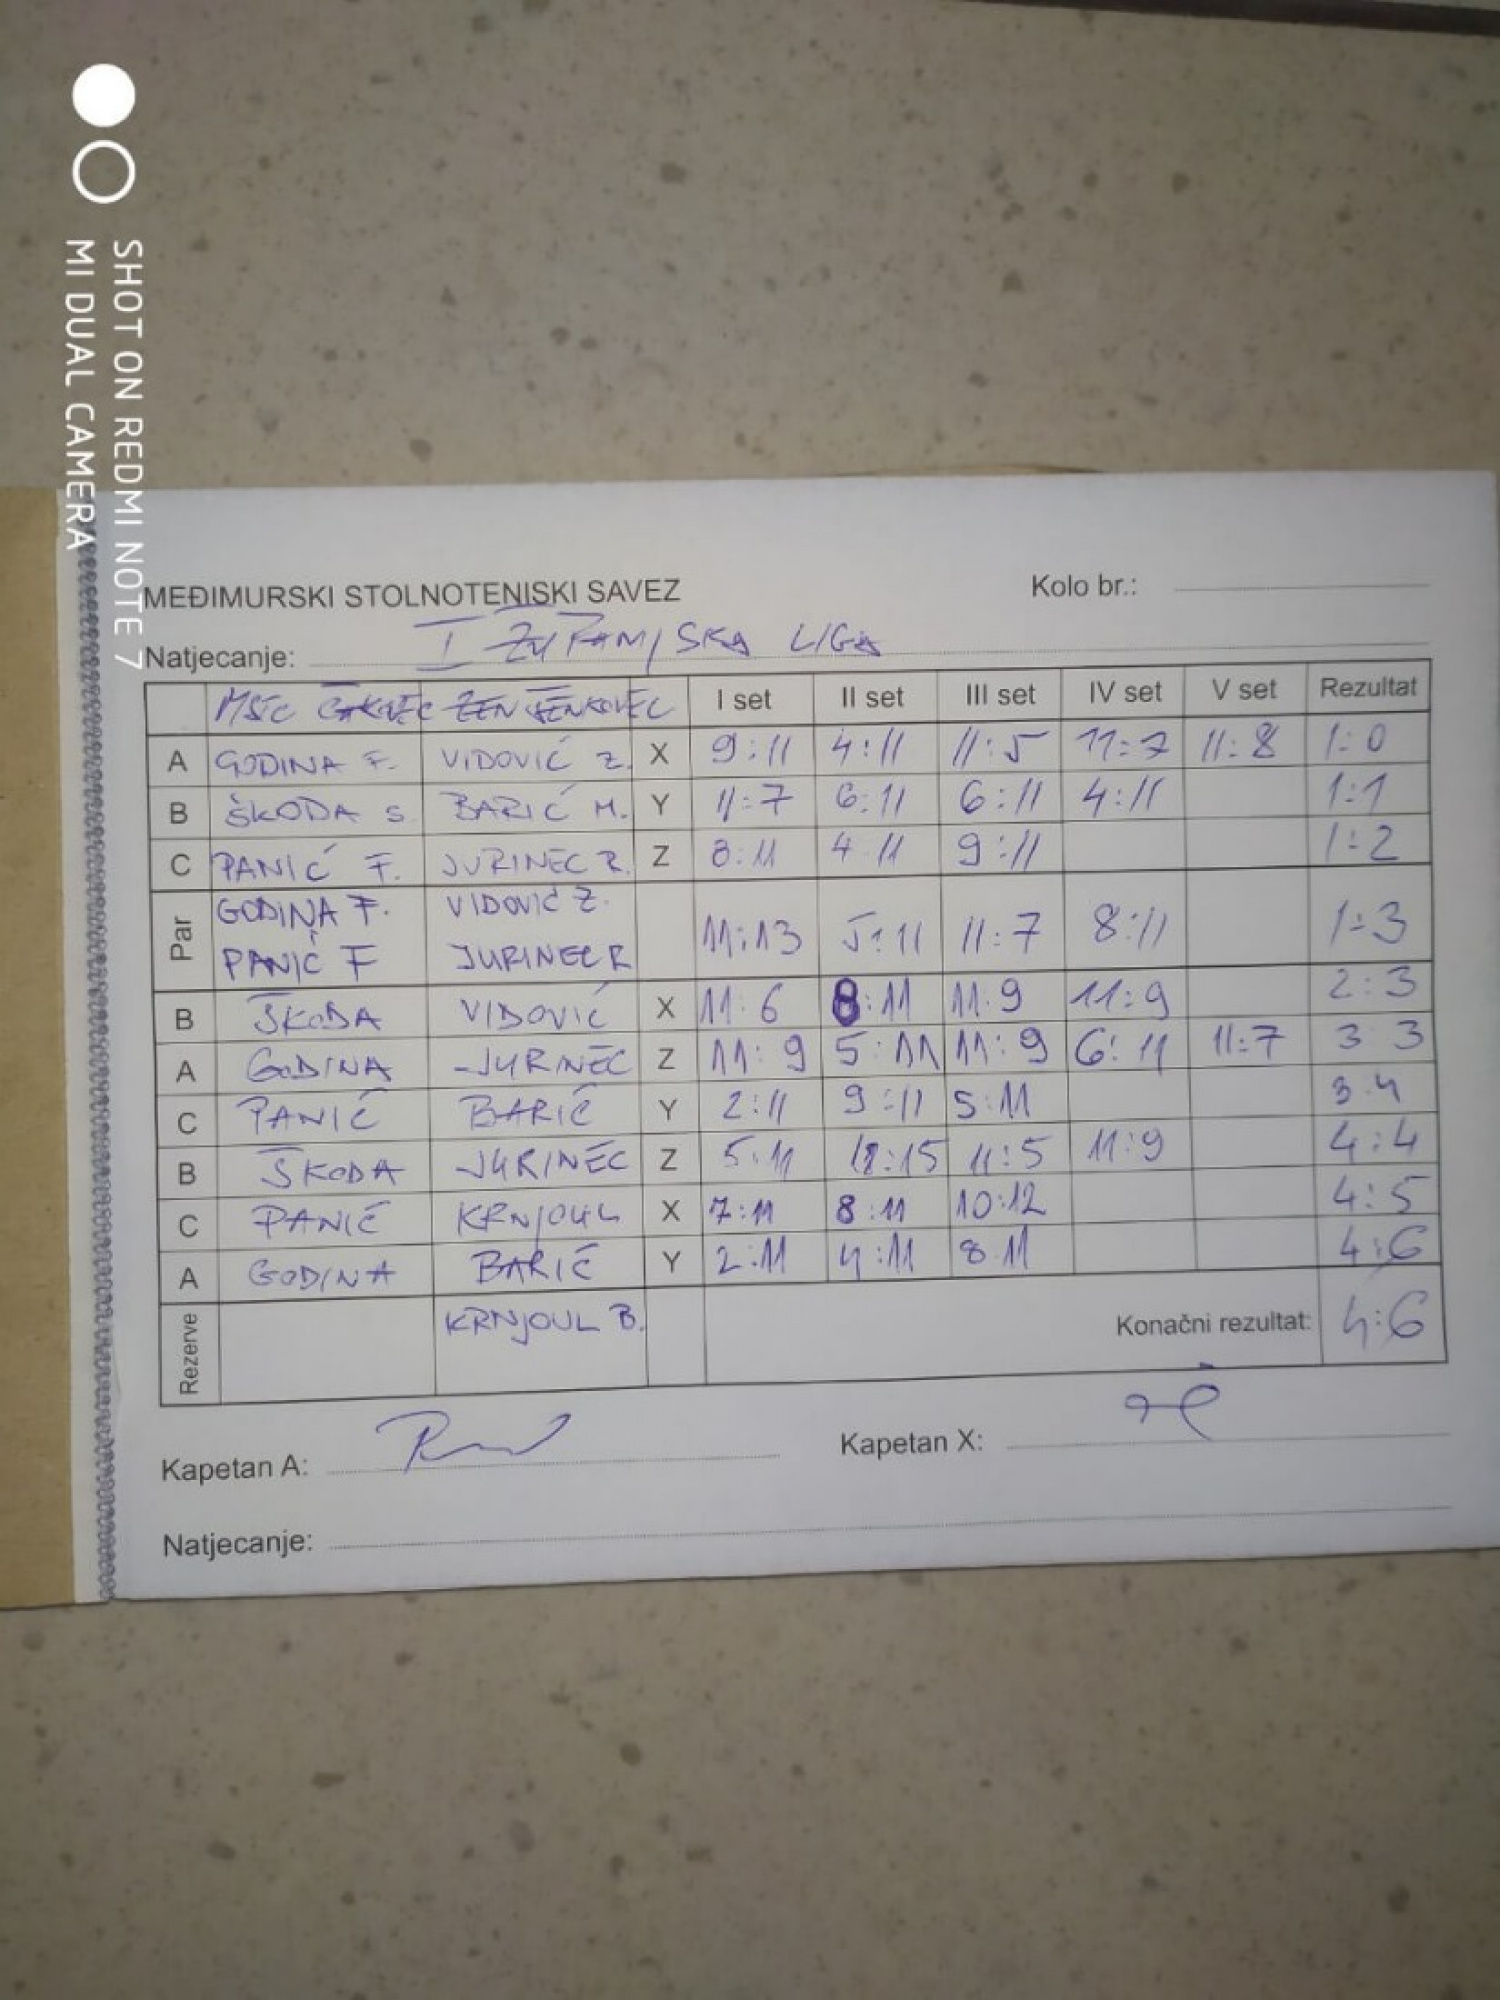 SHOT ON REDMI NOTE 7
MI DUAL CAMERA
MEĐIMURSKI STOLNOTENISKI SAVEZ Kolo br.:
Natjecanje: I ŽUPANIJSKA LIGA
MSTC ČAKOVEC I set II set III set IV set V set Rezultat
A GODINA F. VIDOVIĆ Z. X 9:11 4:11 11:5 11:7 11:8 1:0
B ŠKODA S. BARIĆ M. Y 11:7 6:11 6:11 4:11 1:1
C PANIĆ F. JURINEC R. Z 8:11 4:11 9:11 1:2
Par GODINA F. VIDOVIĆ Z. 11:13 5:11 11:7 8:11 1:3
PANIĆ F JURINEC R
B ŠKODA VIDOVIĆ X 11:6 8:11 11:9 11:9 2:3
A GODINA JURINEC Z 11:9 5:11 11:9 6:11 11:7 3:3
C PANIĆ BARIĆ Y 2:11 9:11 5:11 3:4
B ŠKODA JURINEC Z 5:11 :15 11:5 11:9 4:4
C PANIĆ KRNJOUL X 7:11 8:11 10:12 4:5
A GODINA BARIĆ Y 2:11 4:11 8:11 4:6
Rezerve KRNJOUL B. Konačni rezultat: 4:6
Kapetan A: Kapetan X:
Natjecanje: